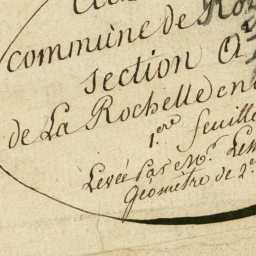 commune de
section
de La Rochelle en
1.ere feuille
Levée Par Mr.
Géomètre de 2.e